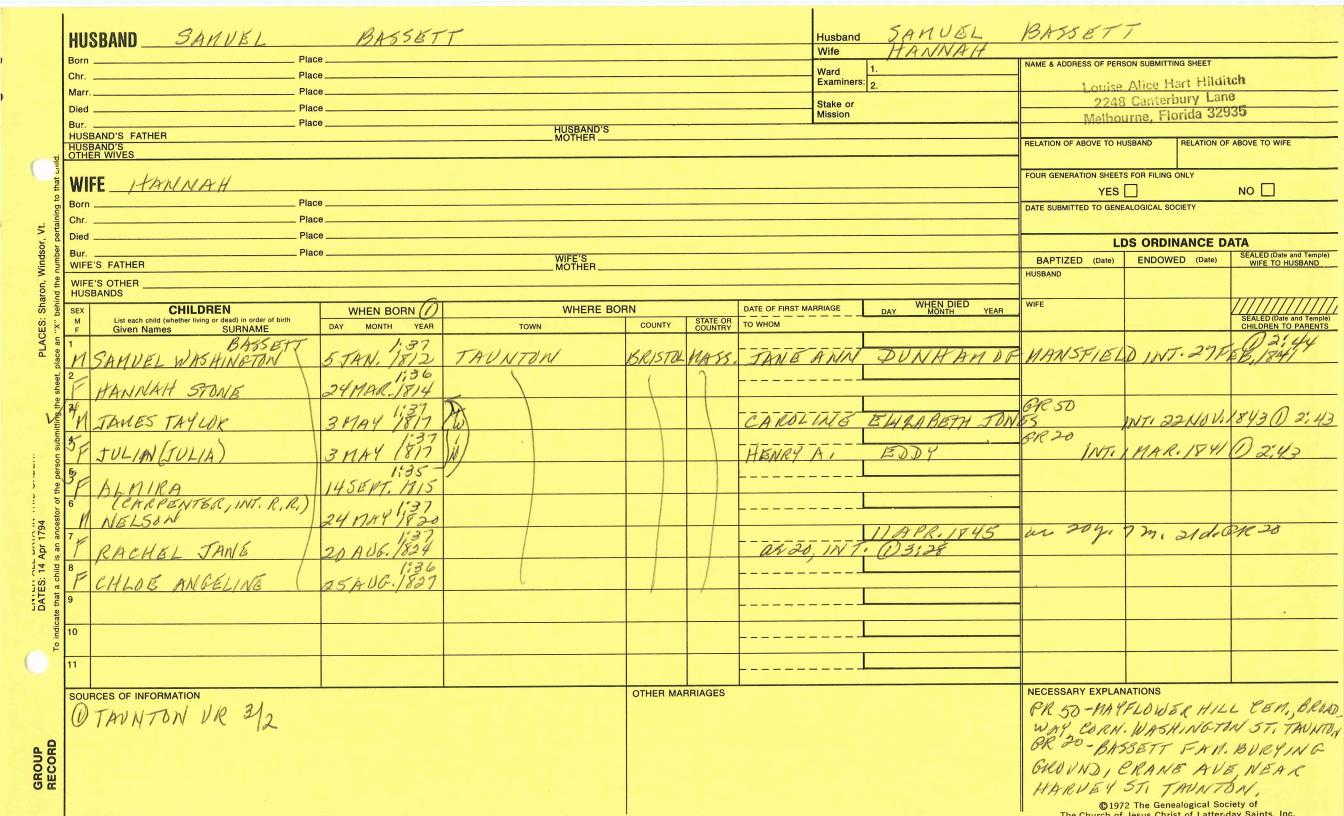 HUSBAND SAMUEL BASSETT
Born Place
Chr. Place
Marr. Place
Died Place
Bur. Place
HUSBAND'S FATHER HUSBAND'S MOTHER
HUSBAND'S OTHER WIVES
Husband SAMUEL BASSETT
Wife HANNAH
Ward Examiners: 1.
2.
Stake or Mission
NAME & ADDRESS OF PERSON SUBMITTING SHEET
Louise Alice Hart Hilditch
2248 Canterbury Lane
Melbourne, Florida 32935
RELATION OF ABOVE TO HUSBAND RELATION OF ABOVE TO WIFE
FOUR GENERATION SHEETS FOR FILING ONLY
YES NO
DATE SUBMITTED TO GENEALOGICAL SOCIETY
WIFE HANNAH
Born Place
Chr. Place
Died Place
Bur. Place
WIFE'S FATHER WIFE'S MOTHER
WIFE'S OTHER HUSBANDS
LDS ORDINANCE DATA
BAPTIZED (Date) ENDOWED (Date) SEALED (Date and Temple) WIFE TO HUSBAND
HUSBAND
WIFE
SEALED (Date and Temple) CHILDREN TO PARENTS
SEX M F
CHILDREN
List each child (whether living or dead) in order of birth
Given Names SURNAME
WHEN BORN ①
DAY MONTH YEAR
WHERE BORN
TOWN COUNTY STATE OR COUNTRY
DATE OF FIRST MARRIAGE
TO WHOM
WHEN DIED
DAY MONTH YEAR
1 BASSETT 1:37 ① 2:44
M SAMUEL WASHINGTON 5 JAN. 1812 TAUNTON BRISTOL MASS. JANE ANN DUNHAM OF MANSFIELD INT. 27 FEB. 1841
2 1:36
F HANNAH STONE 24 MAR. 1814
4 1:37 GR 50
M JAMES TAYLOR 3 MAY 1817 CAROLINE ELIZABETH JONES INT. 22 NOV. 1843 ① 2:43
5 1:37 GR 20
F JULIAN (JULIA) 3 MAY 1817 HENRY A. EDDY INT. 1 MAR. 1841 ① 2:43
3 1:35
F ALMIRA 14 SEPT. 1815
6 (CARPENTER, INT. R.R.) 1:37
M NELSON 24 MAY 1820
7 1:37 11 APR. 1845 ae 20y. 7m. 21d. GR 20
F RACHEL JANE 20 AUG. 1824 ae 20, INT. ① 3:28
8 1:36
F CHLOE ANGELINE 25 AUG. 1827
9
10
11
SOURCES OF INFORMATION
① TAUNTON VR 3/2
OTHER MARRIAGES
NECESSARY EXPLANATIONS
GR 50-MAYFLOWER HILL CEM., BROAD
WAY, CORN. WASHINGTON ST. TAUNTON
GR 20-BASSETT FAM. BURYING
GROUND, CRANE AVE, NEAR
HARVEY ST. TAUNTON.
©1972 The Genealogical Society of
The Church of Jesus Christ of Latter-day Saints, Inc.
PLACES: Sharon, Windsor, Vt.
DATES: 14 Apr 1794
To indicate that a child is an ancestor of the person submitting the sheet, place an "X" behind the number pertaining to that child.
GROUP RECORD